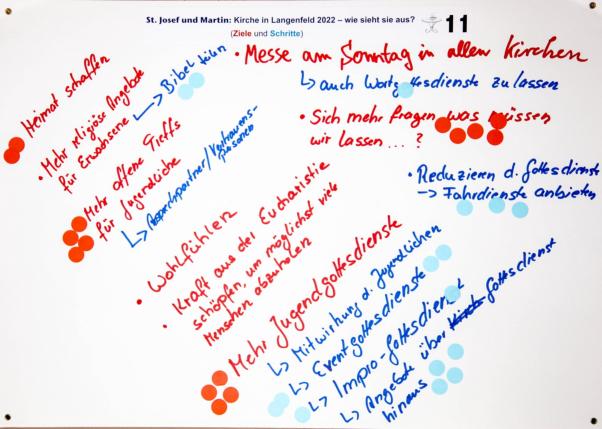 St. Josef und Martin: Kirche in Langenfeld 2022 – wie sieht sie aus?
(Ziele und Schritte)
11
Heimat schaffen
• Mehr religiöse Angebote
für Erwachsene
↳ Bibel teilen
Mehr offene Treffs
für Jugendliche
↳ Ansprechpartner/Vertrauens-
personen
• Messe am Sonntag in allen Kirchen
↳ auch Wortgottesdienste zulassen
• Sich mehr fragen was müssen
wir lassen ...?
• Reduzieren d. Gottesdienste
→ Fahrdienste anbieten
• Wohlfühlen
• Kraft aus der Eucharistie
schöpfen, um möglichst viele
Menschen abzuholen
Mehr Jugendgottesdienste
↳ Mitwirkung d. Jugendlichen
↳ Eventgottesdienste
↳ Impro-Gottesdienst
↳ Angebote über Gottesdienst
hinaus